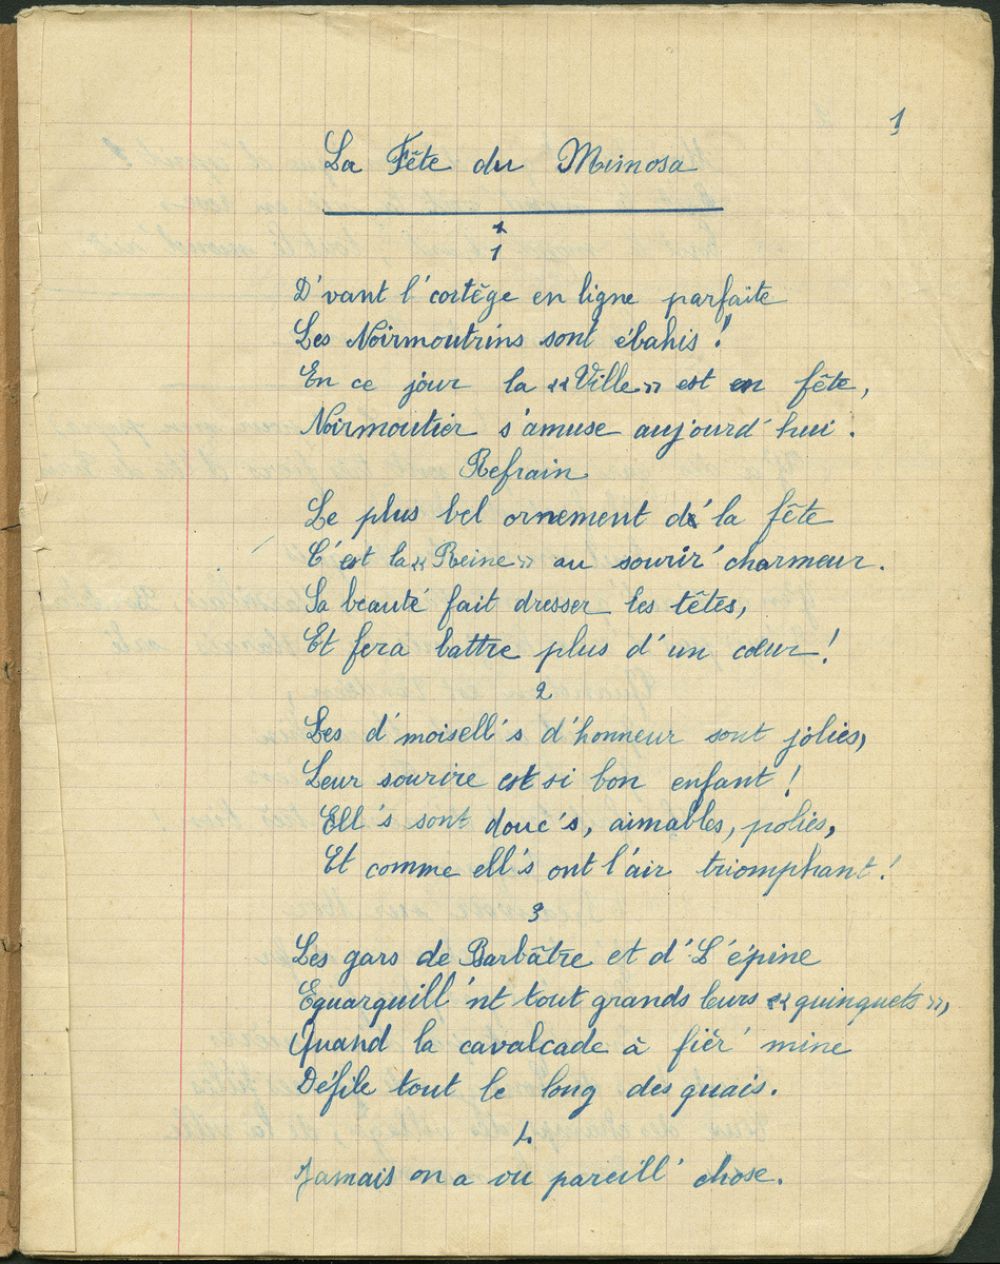 1
La Fête du Mimosa
1
1
D'vant l'cortège en ligne parfaite
Les Noirmoutrins sont ébahis !
En ce jour la « Ville » est en fête,
Noirmoutier s'amuse aujourd'hui.
Refrain
Le plus bel ornement d' la fête
C'est la « Reine » au sourir' charmeur.
Sa beauté fait dresser les têtes,
Et fera battre plus d'un cœur !
2
Les d'moisell's d'honneur sont jolies,
Leur sourire est si bon enfant !
Ell's sont douc's, aimables, polies,
Et comme ell's ont l'air triomphant !
3
Les gars de Barbâtre et d'L'épine
Equarquill'nt tout grands leurs « quinquets »,
Quand la cavalcade à fièr' mine
Défile tout le long des quais.
4.
Jamais on a vu pareill' chose.